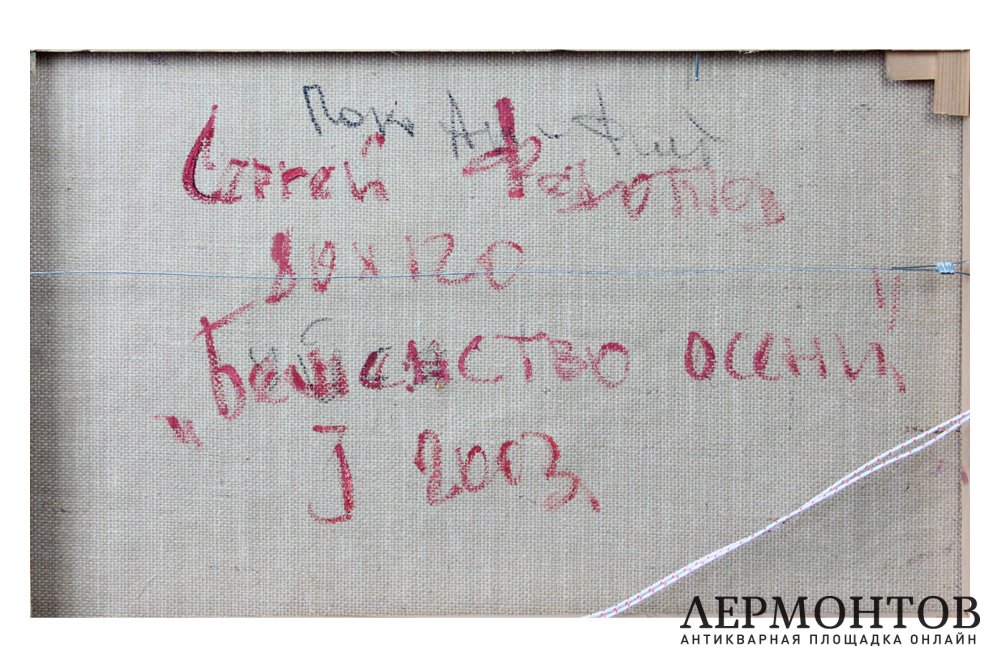 Сергей Федотов
80х120
„Бешенство осени"
J 2003
ЛЕРМОНТОВ
АНТИКВАРНАЯ ПЛОЩАДКА ОНЛАЙН